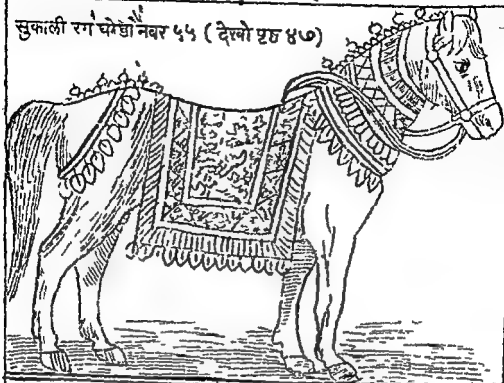 सुकाली रगं घोडा नंबर ५५ ( देखो पृष्ठ ४७)